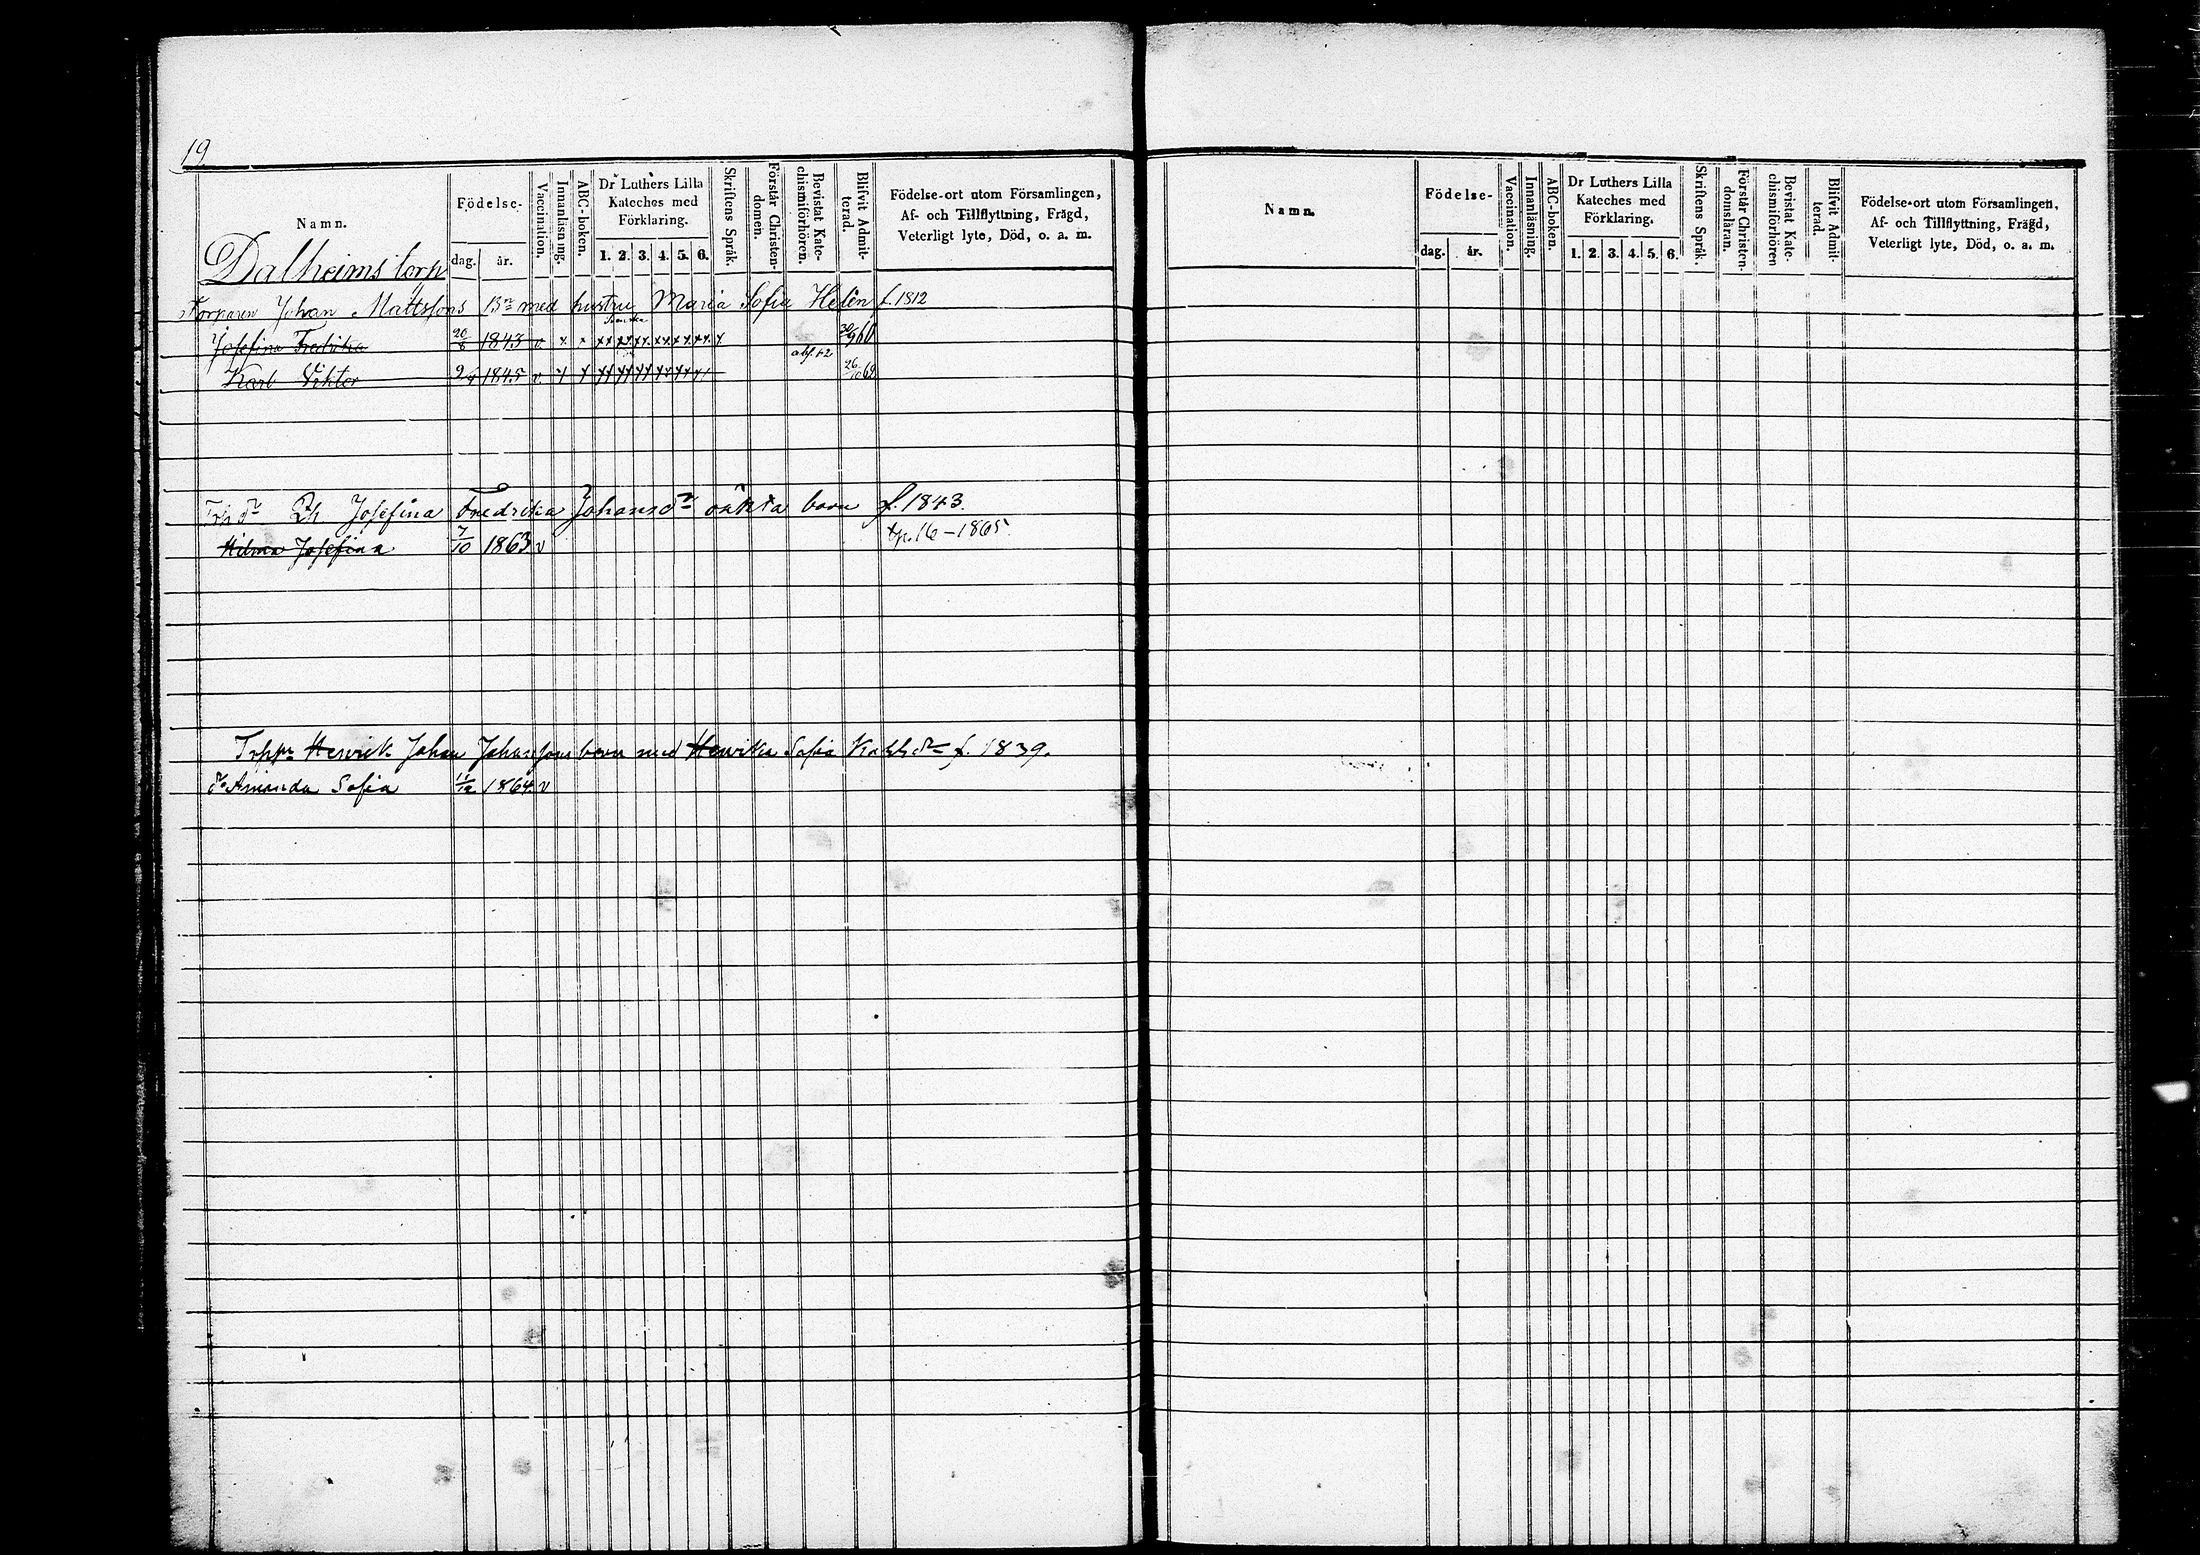 19
Namn. Födelse- Vaccination. Innanläsning. ABC-boken. Dr Luthers Lilla Kateches med Förklaring. Skriftens Språk. Förstår Christen-domen. Bevistat Kate-chismiförhören. Blifvit Admit-terad. Födelse-ort utom Församlingen, Af- och Tillflyttning, Frägd, Veterligt lyte, Död, o. a. m.
dag. år. 1. 2. 3. 4. 5. 6.
Dalheims torp
Torparen Johan Mattssons Bn med hustru Maria Sofia Helén f. 1812
Josefina Fredrika 20/8 1843 v x x xx xx xx xx xx xx x 30/9 60
Karl Viktor 9/4 1845 v x x xx xx xx xx xx x abs. 62 26/10 62
Josefina Fredrika Johansdr oäkta barn f. 1843.
Hilma Josefina 7/10 1863 v 16-1865.
Henrik Johan Johanssons barn med Henrika Sofia f. 1839.
dr Amanda Sofia 11/12 1864 v
Namn. Födelse- Vaccination. Innanläsning. ABC-boken. Dr Luthers Lilla Kateches med Förklaring. Skriftens Språk. Förstår Christen-domsläran. Bevistat Kate-chismiförhören Blifvit Admit-terad. Födelse-ort utom Församlingen, Af- och Tillflyttning, Frägd, Veterligt lyte, Död, o. a. m.
dag. år. 1. 2. 3. 4. 5. 6.